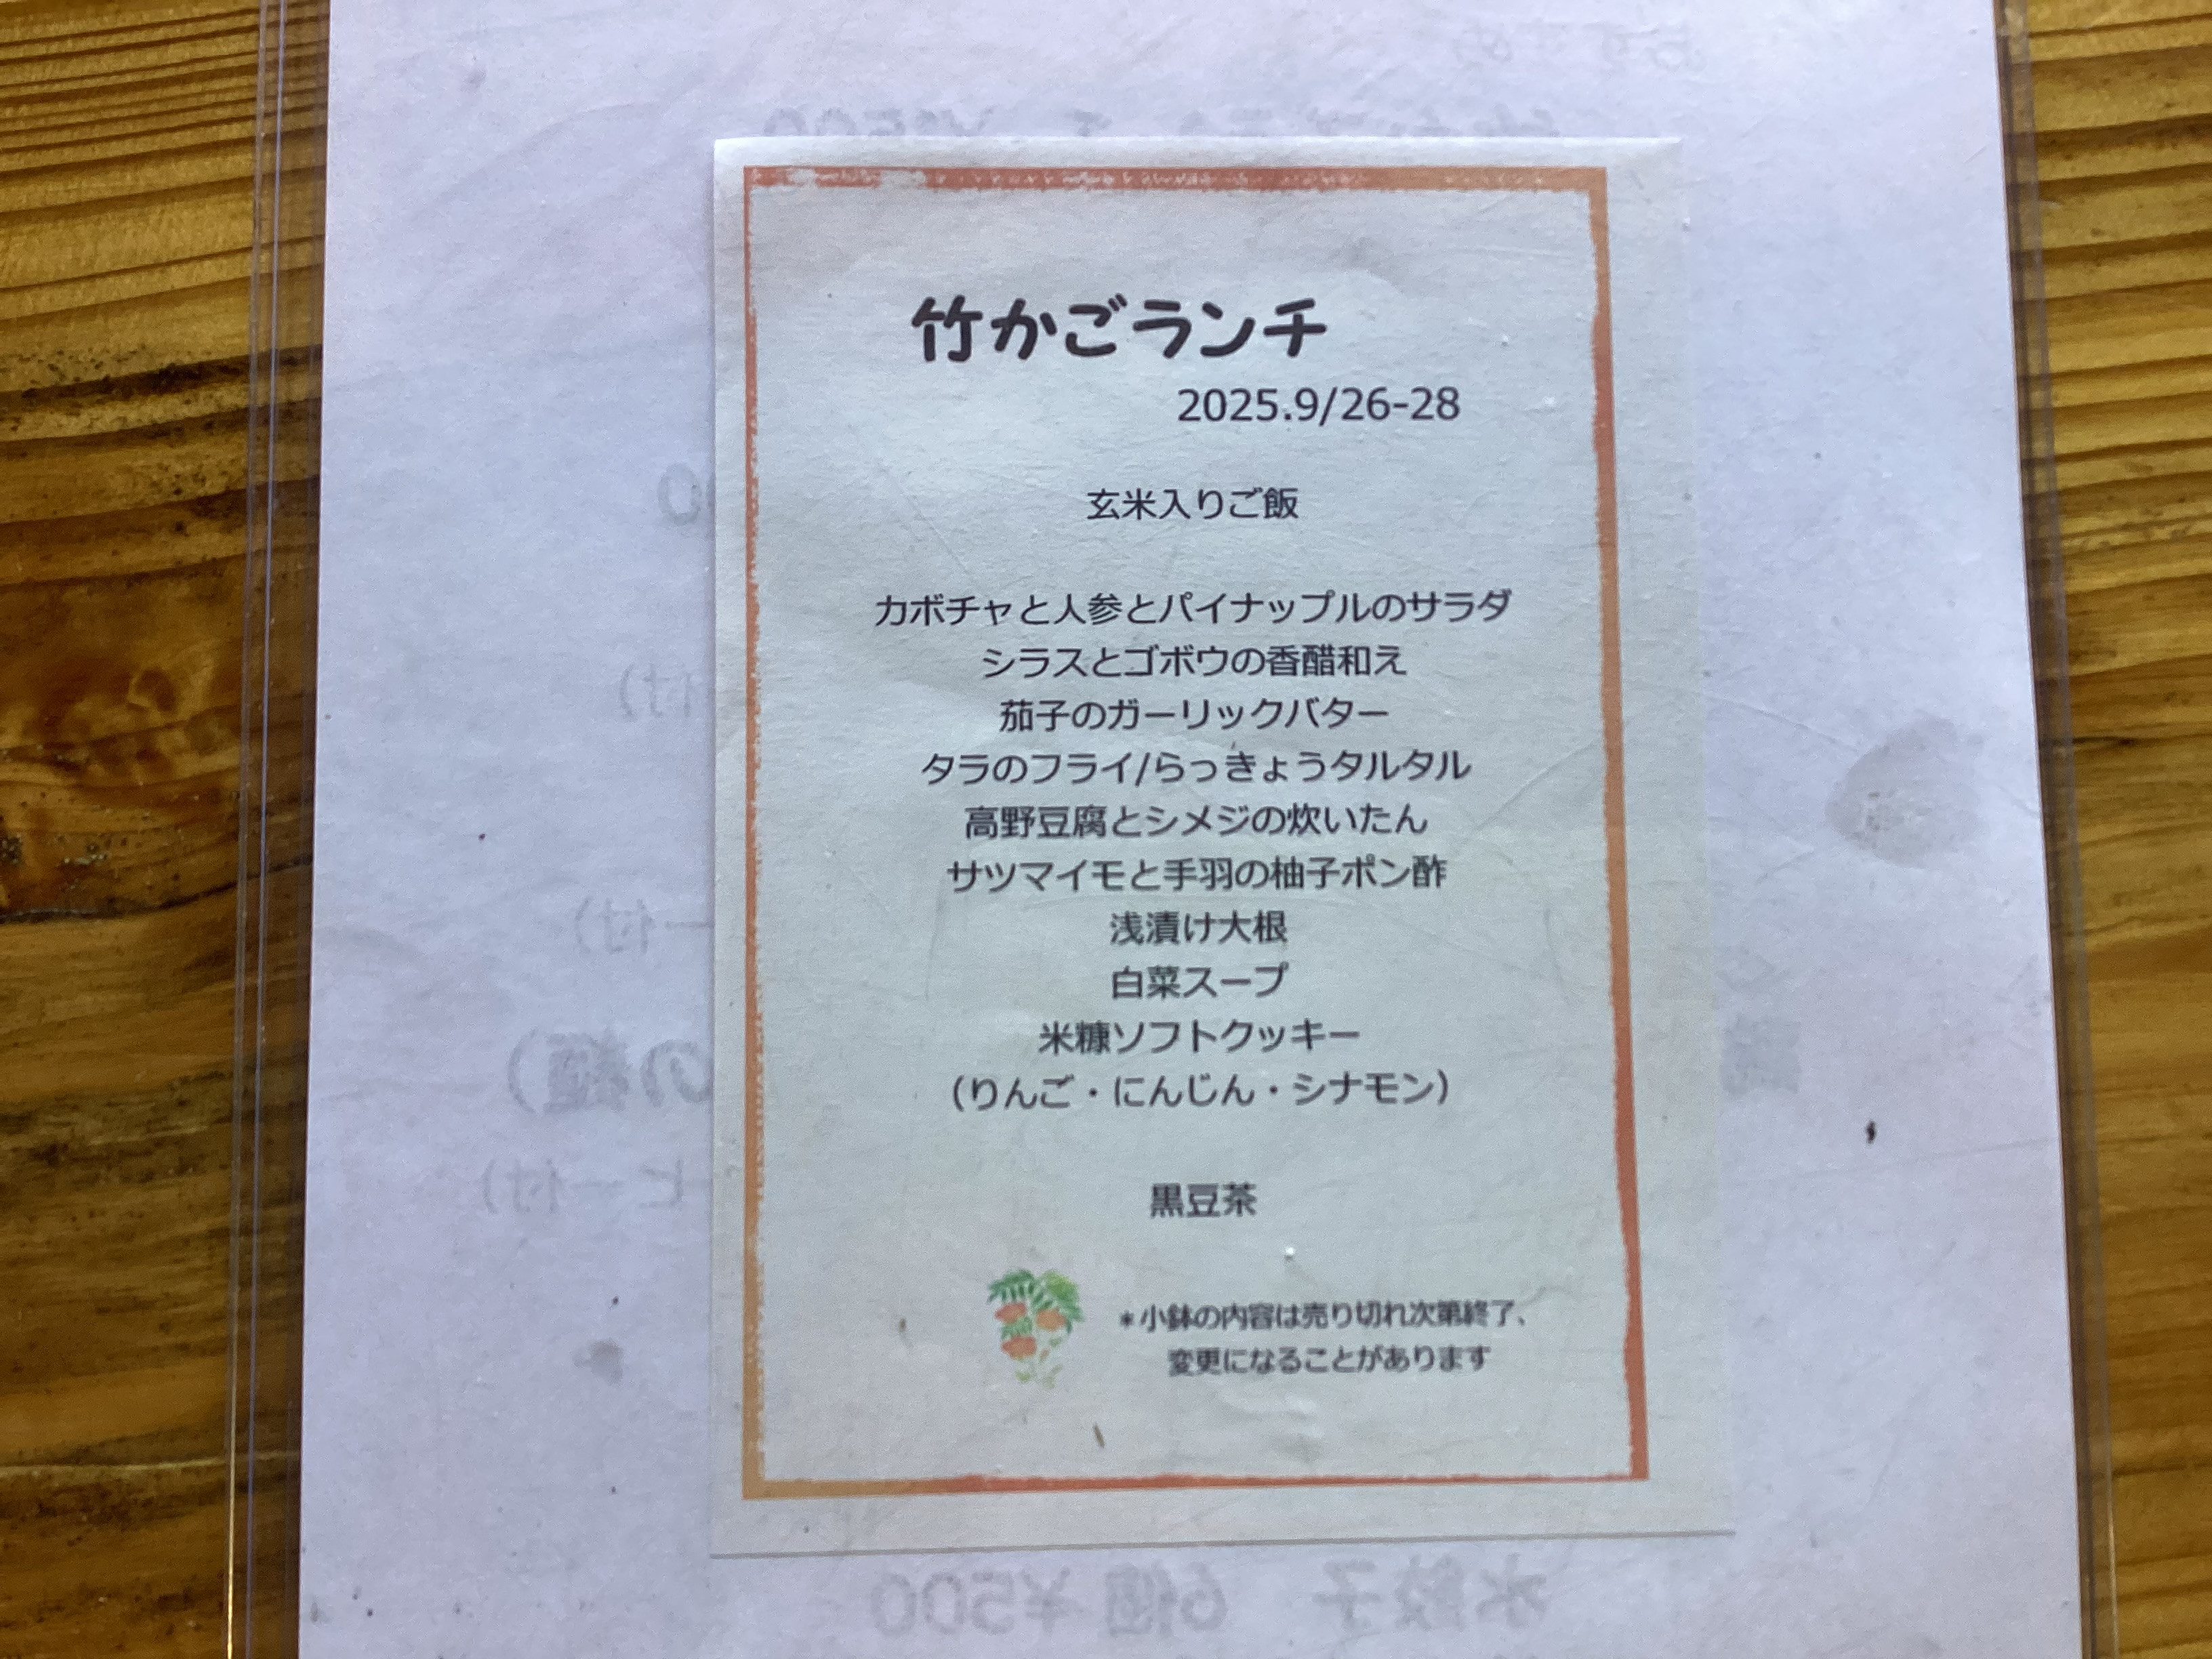 竹かごランチ
2025.9/26-28
玄米入りご飯
カボチャと人参とパイナップルのサラダ
シラスとゴボウの香醋和え
茄子のガーリックバター
タラのフライ/らっきょうタルタル
高野豆腐とシメジの炊いたん
サツマイモと手羽の柚子ポン酢
浅漬け大根
白菜スープ
米糠ソフトクッキー
（りんご・にんじん・シナモン）
黒豆茶
＊小鉢の内容は売り切れ次第終了、
変更になることがあります
水餃子 6個 ¥500